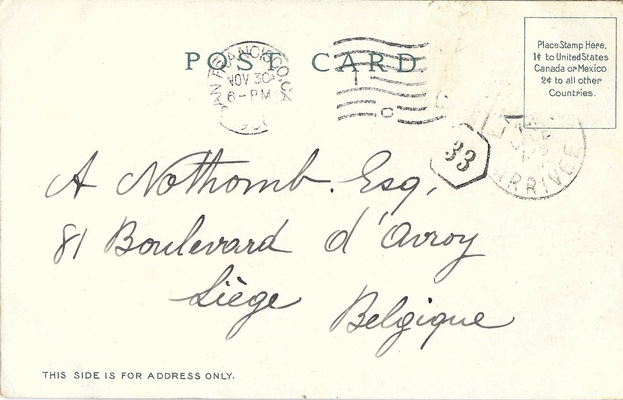 POST CARD
SAN FRANCISCO, CA.
NOV 30
6-PM
Place Stamp Here,
1¢ to United States
Canada or Mexico
2¢ to all other
Countries.
33
ARRIVEE
A Nothomb. Esq,
81 Boulevard d'Avroy
Liège Belgique
THIS SIDE IS FOR ADDRESS ONLY.